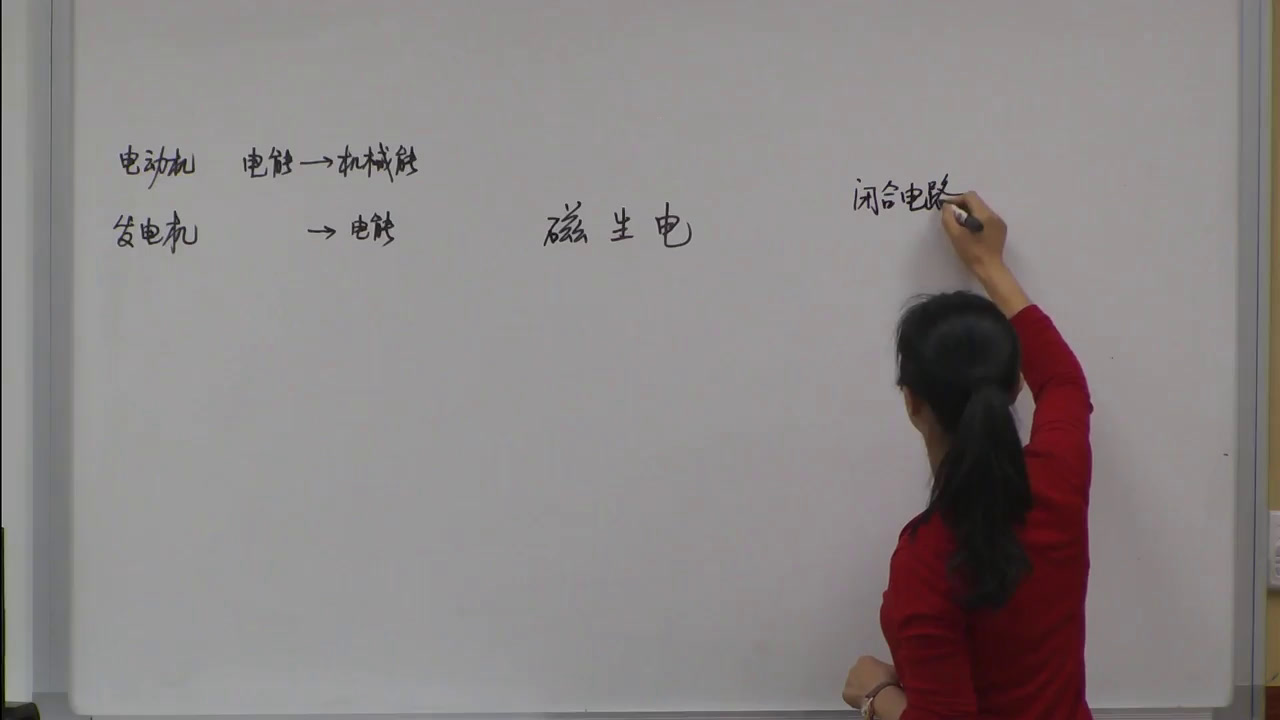 电动机 电能→机械能
发电机 →电能
磁生电
闭合电路